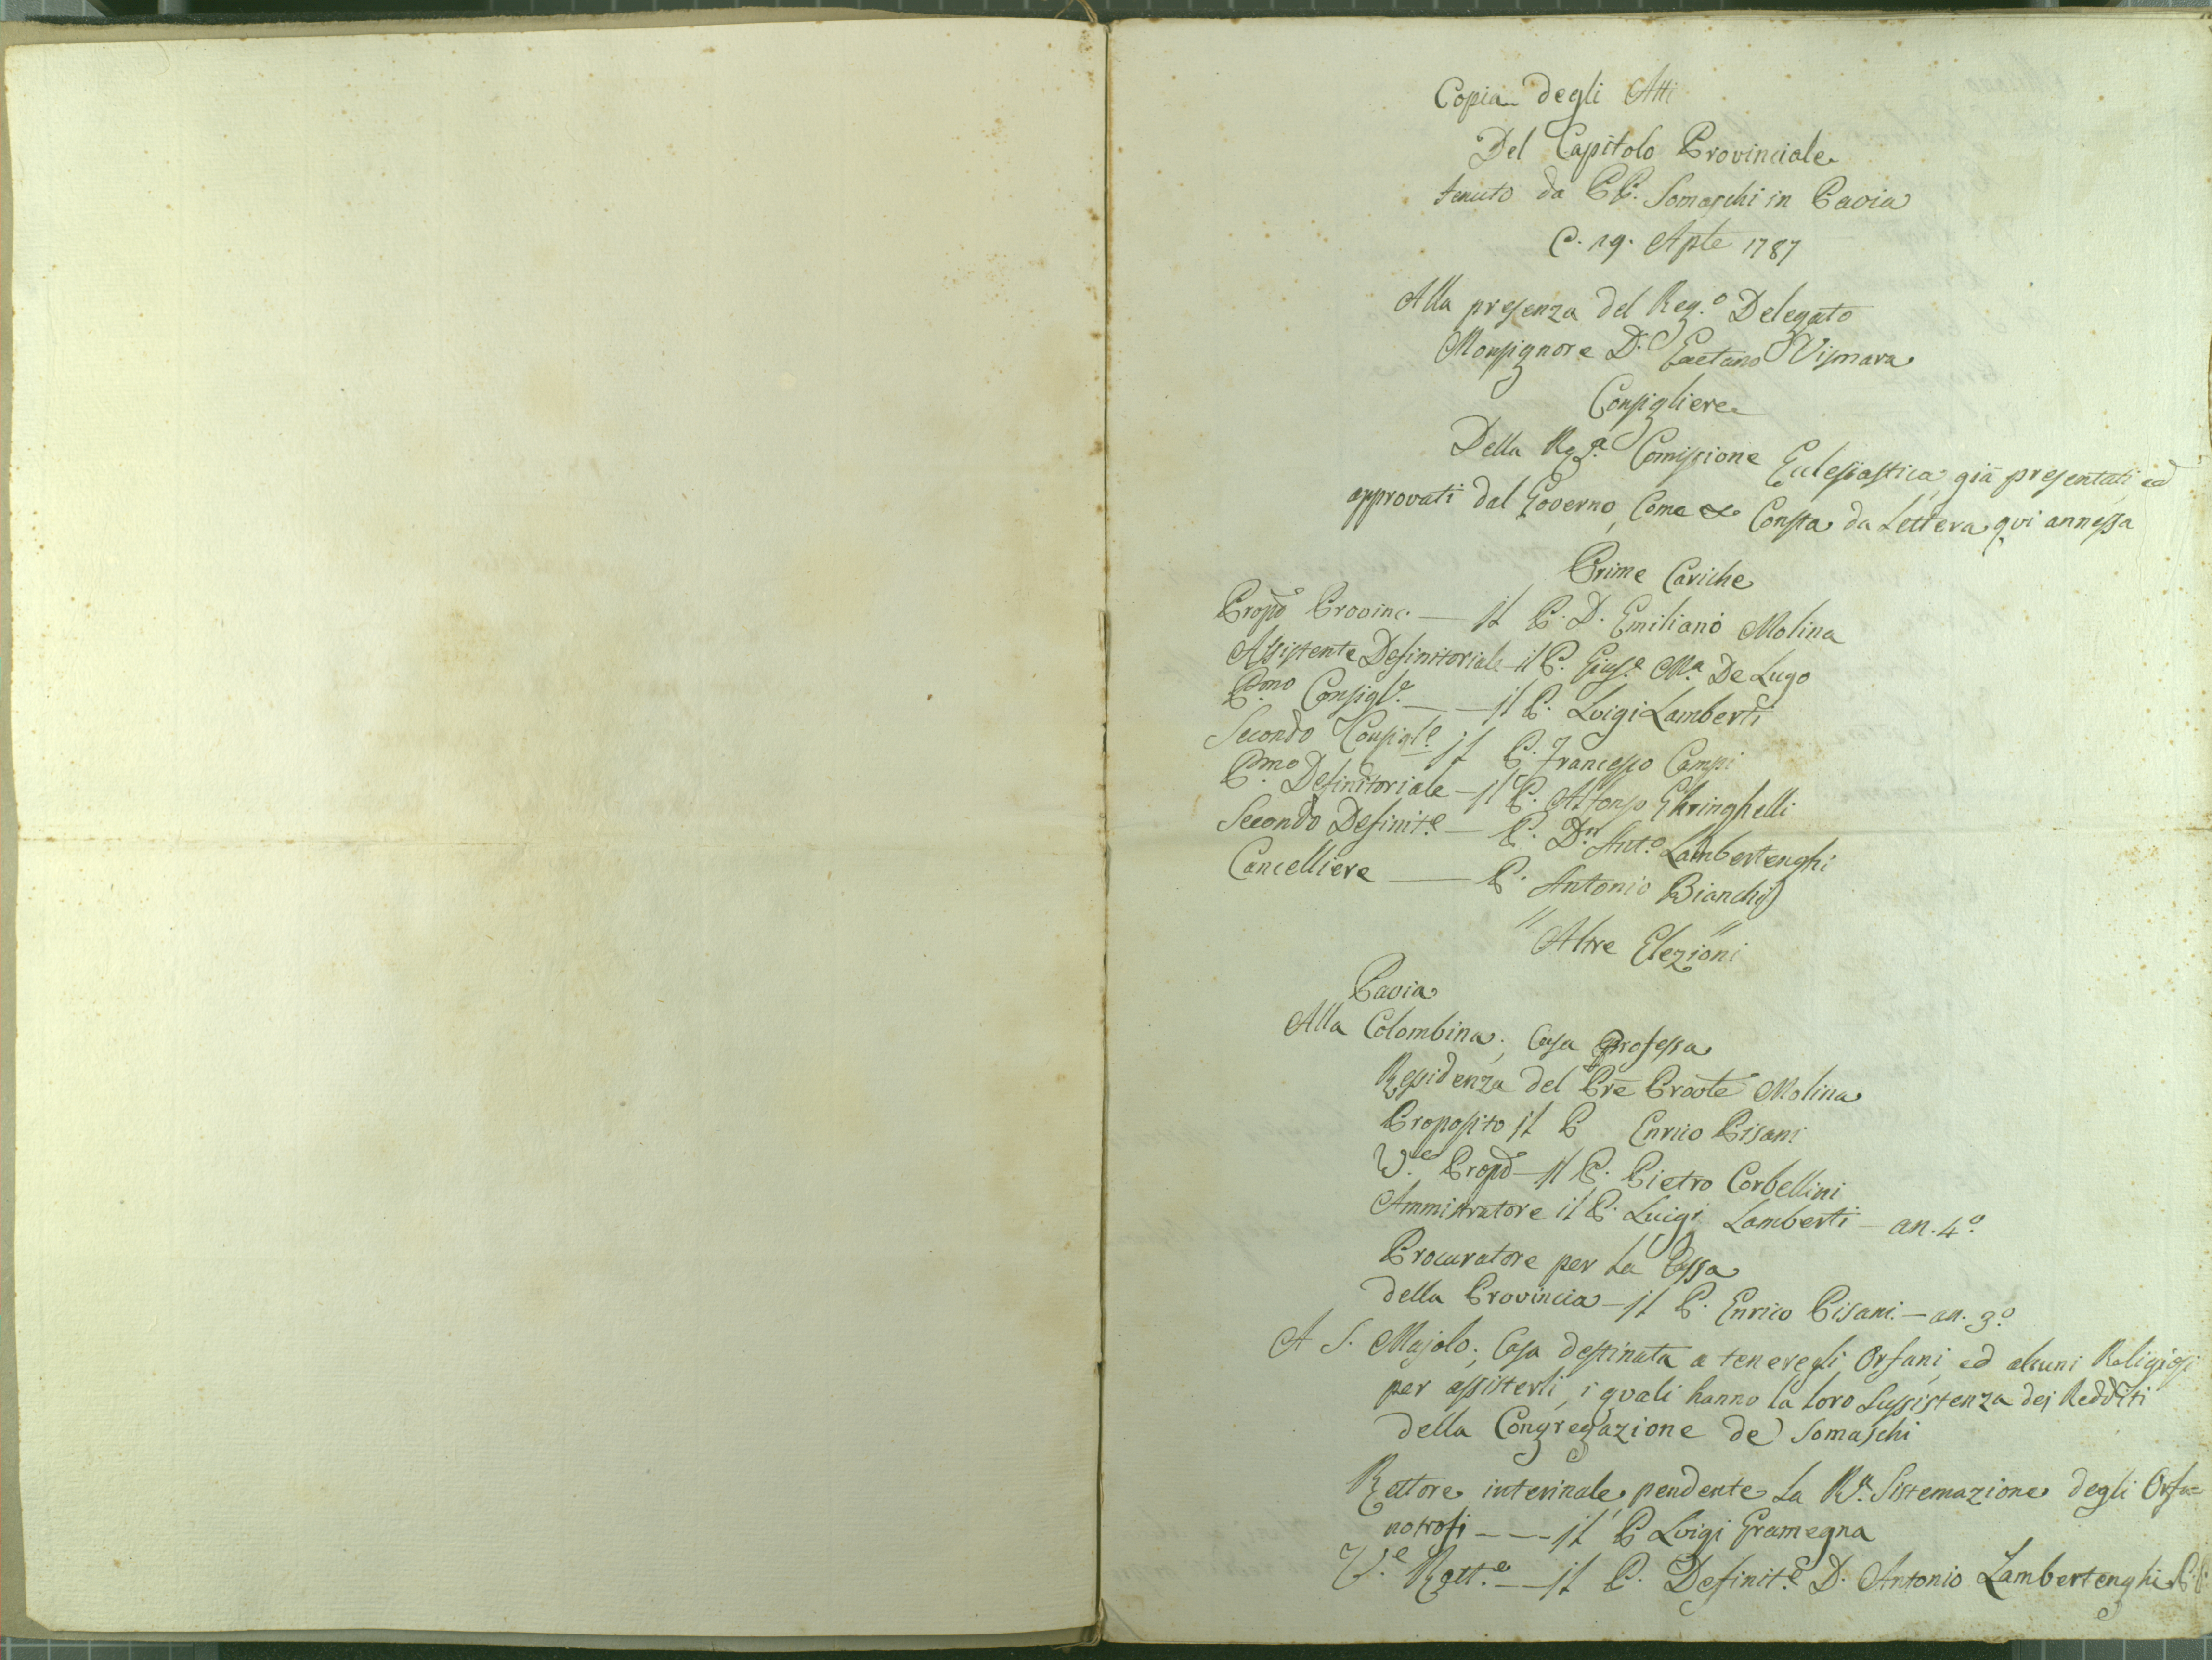 Copia degli Atti
Del Capitolo Provinciale
tenuto da PP. Somaschi in Pavia
19. Aple 1787
Alla presenza del Reg.º Delegato
Monsignore D. Gaetano Vismara
Consigliere
Della Rª. Comissione Eclesiastica, già presentati, ed
approvati dal Governo, Come Consta da Lettera qui annessa
Prime Cariche
Propo Provinc. — Il P. D. Emiliano Molina
Assistente Definitoriale — il P. Gius.e M.a De Lugo
P.mo Consigl.e — — Il P. Luigi Lamberti
Secondo Consigl.e Il P. Francesco Campi
P.mo Definitoriale — Il P. Alfonso Ghringhelli
Secondo Definit.e — P. Dn. Ant.o Lambertenghi
Cancelliere — P. Antonio Bianchi
" Altre Elezioni "
Pavia
Alla Colombina; Casa Professa
Residenza del Pre Proole Molina
Proposito Il P Enrico Pisani
V.e Propo — Il P. Pietro Corbellini
Ammistratore il P. Luigi Lamberti — an. 4.º
Procuratore per La Cassa
della Provincia — Il P. Enrico Pisani. — an. 3.º
A S. Majolo; Casa destinata a tenere gli Orfani, ed alcuni Religiosi
per assisterli, i quali hanno la loro Sussistenza dei Redditi
della Congregazione de' Somaschi
Rettore interinale, pendente La R.a Sistemazione degli Orfa=
notrofi — — — Il P Luigi Gramegna
V.e Rett.e — — Il P. Definit.e D. Antonio Lambertenghi